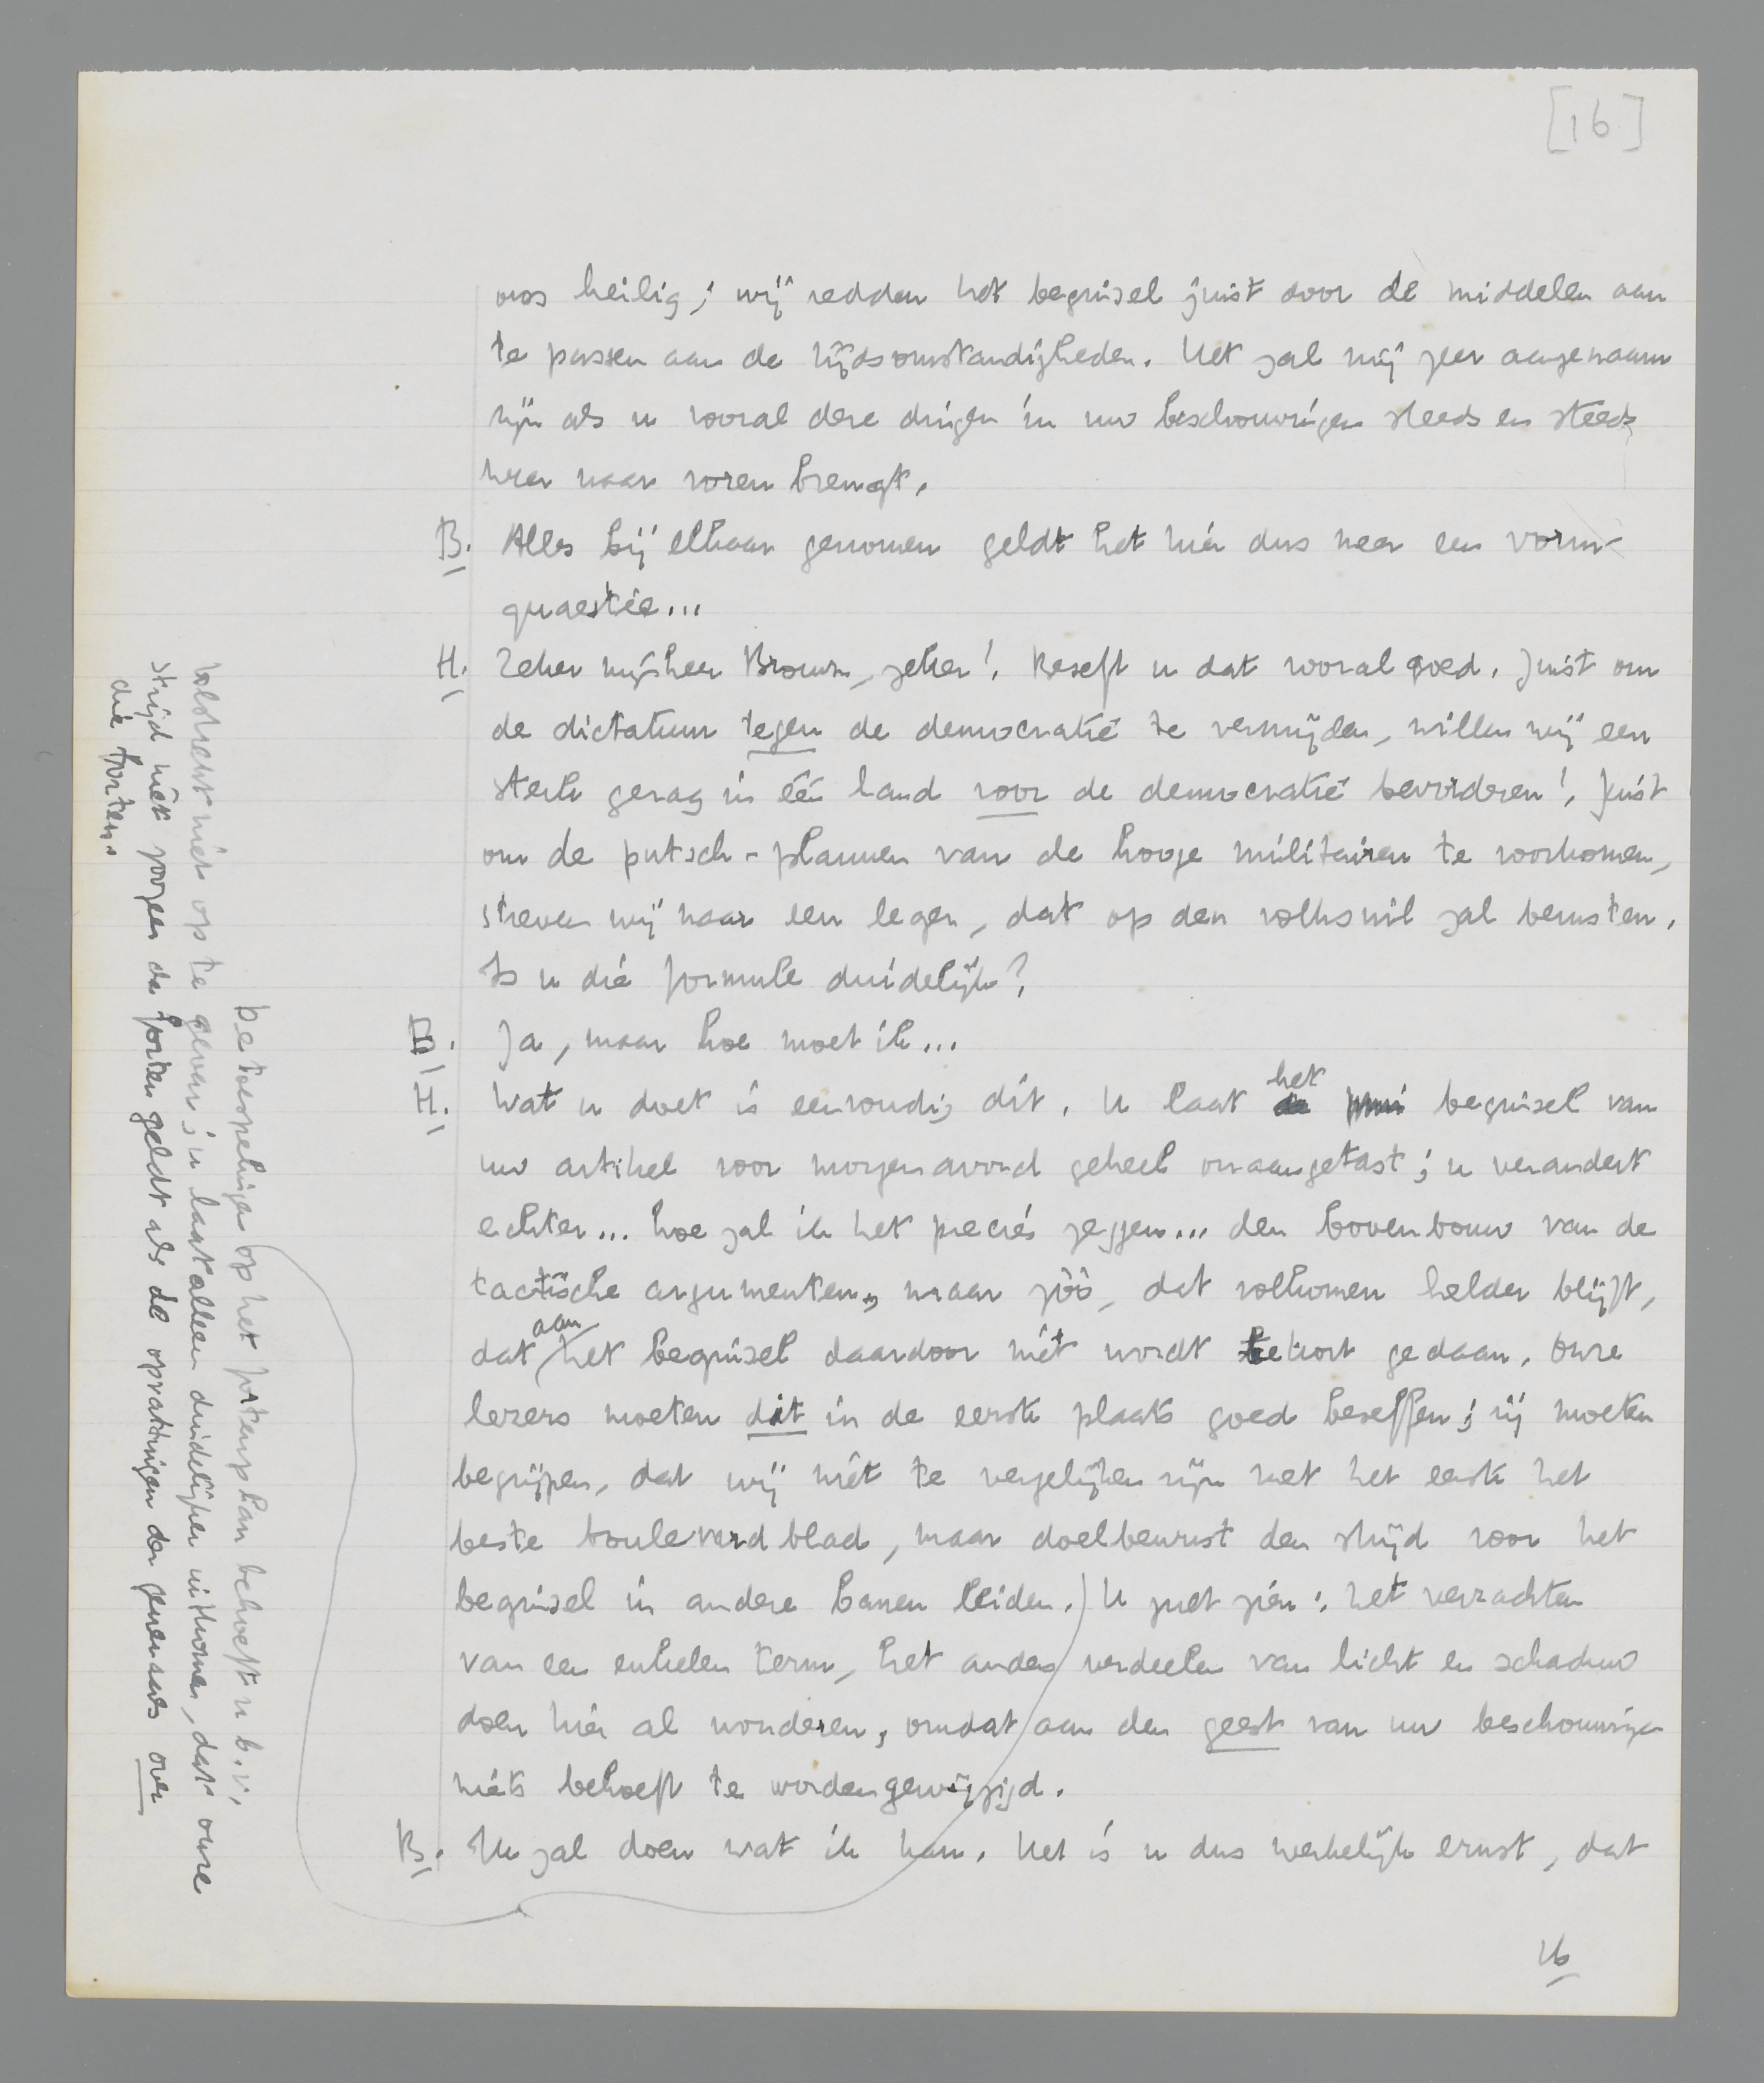 [16]
ons heilig; wij redden het beginsel juist door de middelen aan
te passen aan de tijdsomstandigheden. Het zal mij zeer aangenaam
zijn als u vooral deze dingen in uw beschouwingen steeds en steeds
weer naar voren brengt.
B. Alles bij elkaar genomen geldt het hier dus meer een vorm-
quaestie...
H. Zeker mijnheer Brouwer, zeker! Beseft u dat vooral goed. Juist om
de dictatuur tegen de democratie te vermijden, willen wij een
sterk gezag in één land voor de democratie bevorderen! Juist
om de putsch-plannen van de hooge militairen te voorkomen,
streven wij naar een leger, dat op den volkswil zal berusten.
Is u die formule duidelijk?
B. Ja, maar hoe moet ik...
H. Wat u doet is eenvoudig dit. U laat het beginsel van
uw artikel voor morgenavond geheel onaangetast; u verandert
echter... hoe zal ik het precies zeggen... den bovenbouw van de
tactische argumenten, maar zóó, dat volkomen helder blijft,
dat aan het beginsel daardoor niet wordt tekort gedaan. Onze
lezers moeten dat in de eerste plaats goed beseffen; zij moeten
begrijpen, dat wij niet te vergelijken zijn met het eerste het
beste boulevardblad, maar doelbewust den strijd voor het
beginsel in andere banen leiden. U ziet zien: het verzachten
van een enkelen term, het anders verdeelen van licht en schaduw
doen hier al wonderen, omdat aan den geest van uw beschouwingen
niets behoeft te worden gewijzigd.
B. Ik zal doen wat ik kan. Het is u dus werkelijk ernst, dat
16
De toespelingen op het fortenplan behoeft u b.v.
volstrekt niet op te geven; u laat alleen duidelijker uitkomen, dat onze
strijd niet zoozeer de forten geldt als de opvattingen der generaals over
die forten.